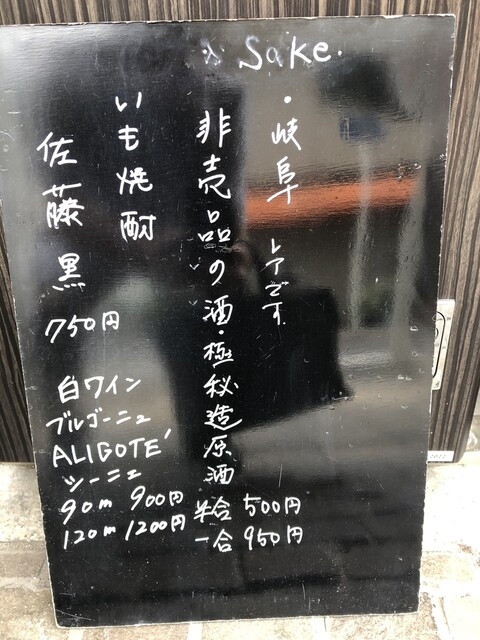 Sake.
・岐阜 レアです
非売品の酒・極秘造原酒
半合 500円
一合 950円
いも焼酎
佐藤黒
750円
白ワイン
ブルゴーニュ
ALIGOTE'
ツーニュ
90m 900円
120m 1200円